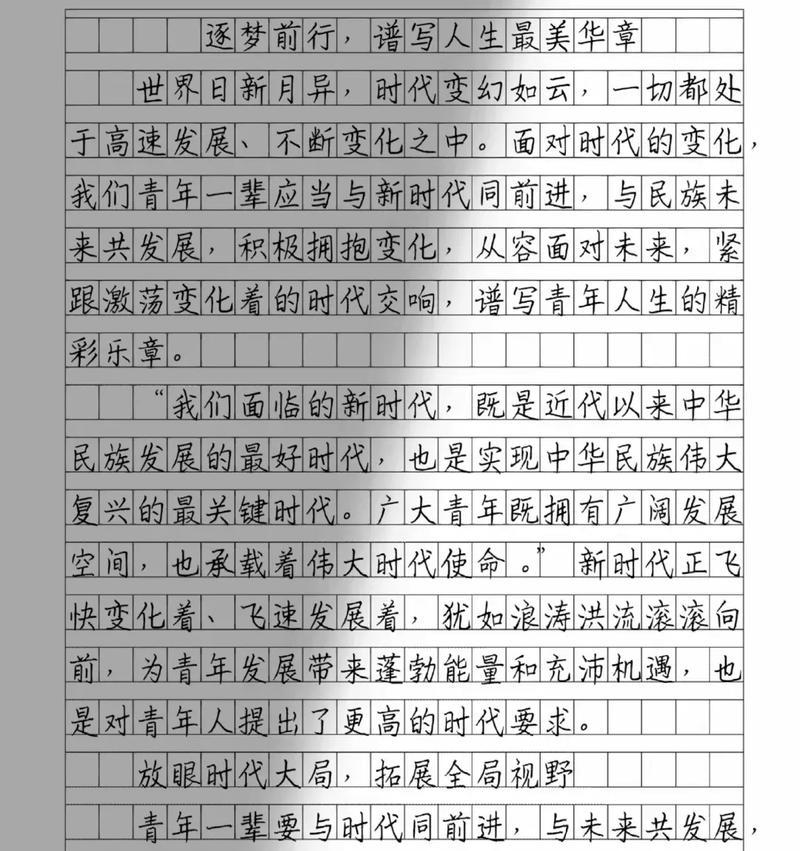 逐梦前行，谱写人生最美华章
世界日新月异，时代变幻如云，一切都处
于高速发展、不断变化之中。面对时代的变化，
我们青年一辈应当与新时代同前进，与民族未
来共发展，积极拥抱变化，从容面对未来，紧
跟激荡变化着的时代交响，谱写青年人生的精
彩乐章。
“我们面临的新时代，既是近代以来中华
民族发展的最好时代，也是实现中华民族伟大
复兴的最关键时代。广大青年既拥有广阔发展
空间，也承载着伟大时代使命。”新时代正飞
快变化着、飞速发展着，犹如浪涛洪流滚滚向
前，为青年发展带来蓬勃能量和充沛机遇，也
是对青年人提出了更高的时代要求。
放眼时代大局，拓展全局视野
青年一辈要与时代同前进，与未来共发展，